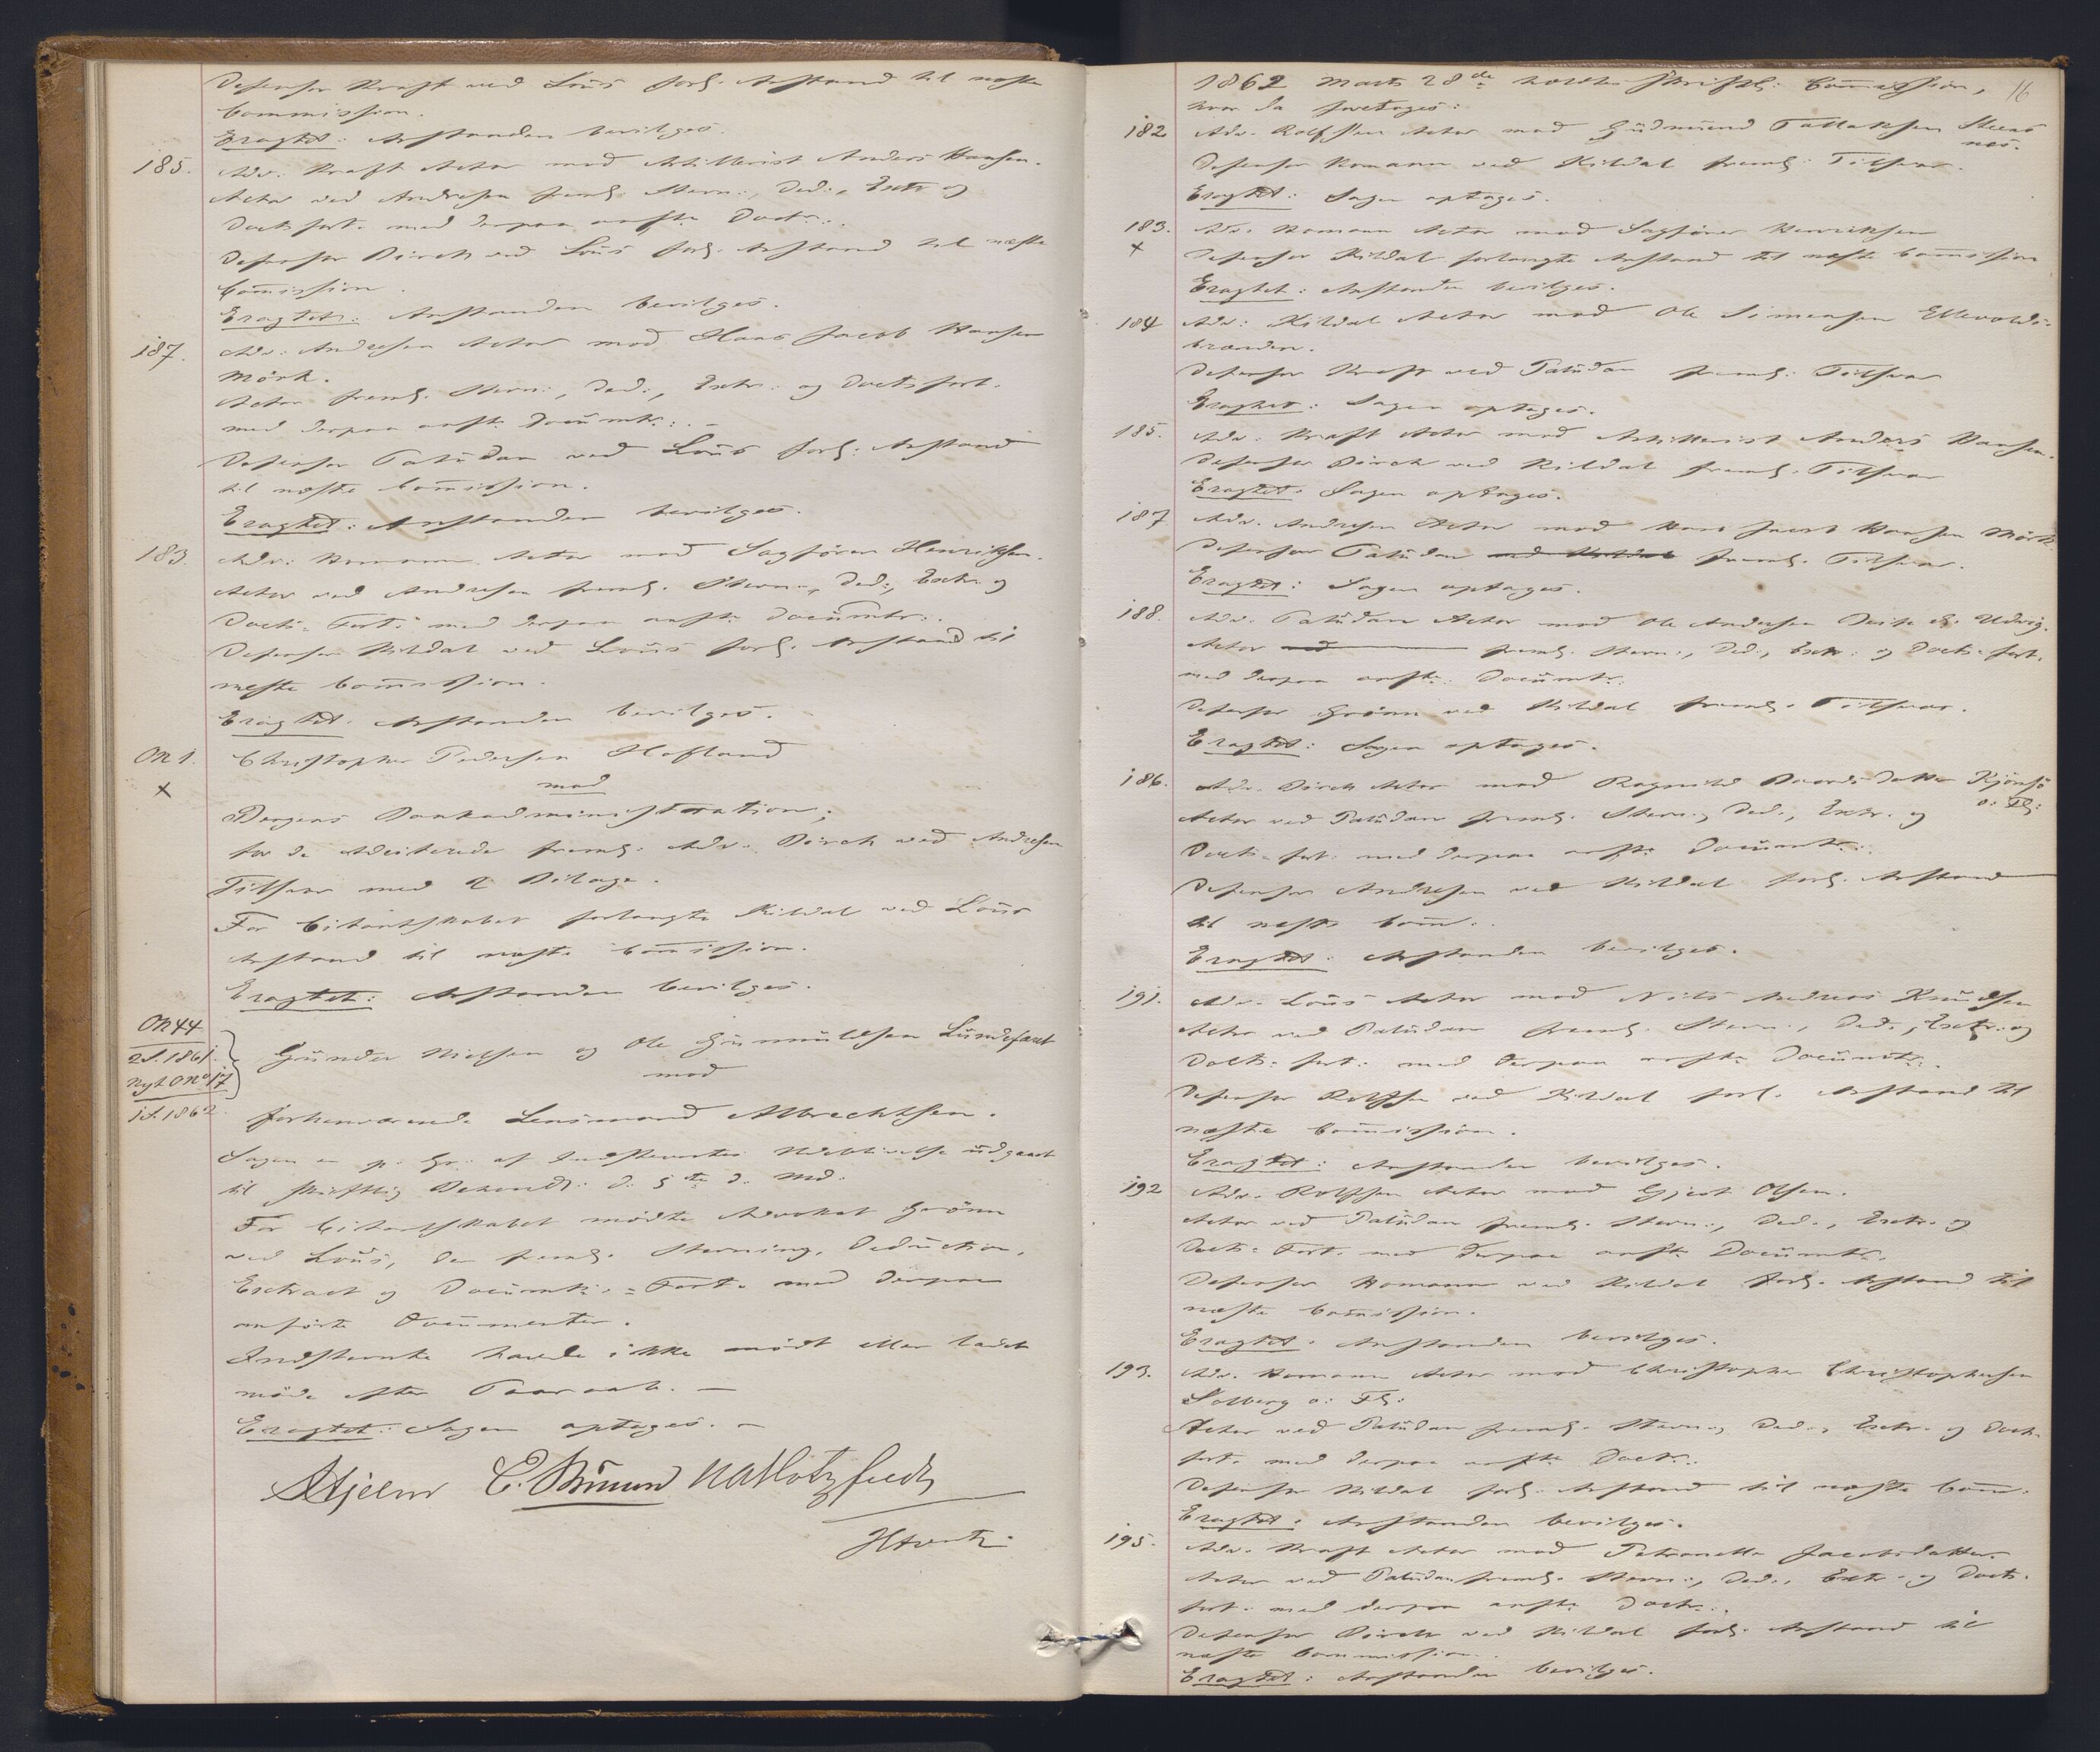 Defensor Kraft ved Lous forl. Anstand til næste
Commission.
Eragtet: Anstanden bevilges.
185. Adv. Kraft Actor mod Artillerist Anders Hansen.
Actor ved Andresen freml. Stevn:, Ded:, Extr og
Docts fort. med derpaa anfte Docts:.
Defensor Birch ved Lous forl. Anstand til næste
Com̅ission.
Eragtet: Anstanden bevilges.
187. Adv: Andresen Actor mod Hans Jacob Hansen
Mörk.
Actor freml. Stevn:, Ded:, Extr: og Docts fort.
med derpaa anfte Documtr:. –
Defensor Paludan ved Lous forl: Anstand
til næste Com̅ission.
Eragtet: Anstanden bevilges.
183. Adv: Homann Actor mod Sagförer Henriksen.
Actor ved Andresen freml. Stevn:, Ded:, Extr. og
Docts= Fort: med derpaa anfte Documtr:.
Defensor Kildal ved Lous forl. Anstand til
næste Com̅ission.
Eragtet: Anstanden bevilges.
ON 1. Christopher Pedersen Hofland
x mod
Bergens Bankadministration;
for de Aciterede freml. Adv. Birch ved Andresen
Tilsvar med 2 Bilage.
For Citantskabet forlangte Kildal ved Lous
Anstand til næste Com̅ission.
Eragtet: Anstanden bevilges.
ON 44
2 S. 1861.
Nyt ON 17
1 S. 1862.
Gunder Nielsen og Ole Gunnuldsen Lundefaret
mod
forhenværende Lensmand Albrechtsen.
Sagen er p. Gr: af Indstevntes Udeblivelse udgaaet
til skriftlig Behandl: d. 5te d. Md.
For Citantskabet mödte Advokat Grönn
ved Lous, der freml. Stevning, Deduction,
Extract og Documts:= Fort. med derpaa
anförte Documenter.
Indstevnte havde ikke mödt eller ladet
möde efter Paaraab. –
Eragtet: Sagen optages. –
Hjelm E. Bruun
16
1862 Marts 28de holdtes skriftl: Com̅ission,
hvor da foretoges:
182 Adv. Rolfsen Actor mod Gudmund Tallaksen Steens
næs.
Defensor Homann ved Kildal freml: Tilsvar.
Eragtet: Sagen optages.
183. Adv. Homann Actor mod Sagförer Henriksen
x Defensor Kildal forlangte Anstand til næste Com̅ission
Eragtet: Anstanden bevilges.
184 Adv: Kildal Actor mod Ole Simensen Ellevolds=
braaden.
Defensor Kraft ved Paludan freml: Tilsvar
Eragtet: Sagen optages.
185. Adv. Kraft Actor mod Artillerist Anders Hansen.
Defensor Birch ved Kildal freml. Tilsvar
Eragtet: Sagen optages.
187 Adv. Andresen Actor mod Hans Jacob Hansen Mörk
Defensor Paludan ved Kildal freml. Tilsvar.
Eragtet: Sagen optages.
188. Adv. Paludan Actor mod Ole Andersen
Actor ved freml. Stevn:, Ded:, Extr: og Docts: fort.
med derpaa anfte: Documtr:
Defensor Grönn ved Kildal freml. Tilsvar.
Eragtet: Sagen optages.
186. Adv. Birch Actor mod Ragnild Baardsdatter Kjönsö
o: Fl:
Actor ved Paludan freml. Stevn:, Ded., Extr. og
Docts= fort: med derpaa anfte Documtr:.
Defensor Andresen ved Kildal forl. Anstand
til næste Com̅.
Eragtet: Anstanden bevilges.
191. Adv. Lous Actor mod Nils Andreas Knudsen
Actor ved Paludan freml. Stevn:, Ded., Extr: og
Docts: fort: med derpaa anfte Documtr:.
Defensor Rolfsen ved Kildal forl. Anstand til
næste Com̅ission.
Eragtet: Anstanden bevilges.
192 Adv. Rolfsen Actor mod Gjest Olsen.
Actor ved Paludan freml. Stevn:, Ded., Extr. og
Docts= Fort. med derpaa anfte Documtr.
Defensor Homann ved Kildal forl. Anstand til
næste Com̅ission.
Eragtet: Anstanden bevilges.
193. Adv. Homann Actor mod Christopher Christophersen
Solberg o: Fl:
Actor ved Paludan freml. Stevn:, Ded., Extr. og Docts.
fort. med derpaa anfte Doctr:.
Defensor Kildal forl. Anstand til næste Com̅.
Eragtet: Anstanden bevilges.
195. Adv. Kraft Actor mod Petronelle Jacobsdatter.
Actor ved Paludan freml. Stevn:, Ded., Extr. og Docts.
fort. med derpaa anfte Doctr:.
Defensor Birch ved Kildal forl. Anstand til
næste Commission.
Eragtet: Anstanden bevilges.